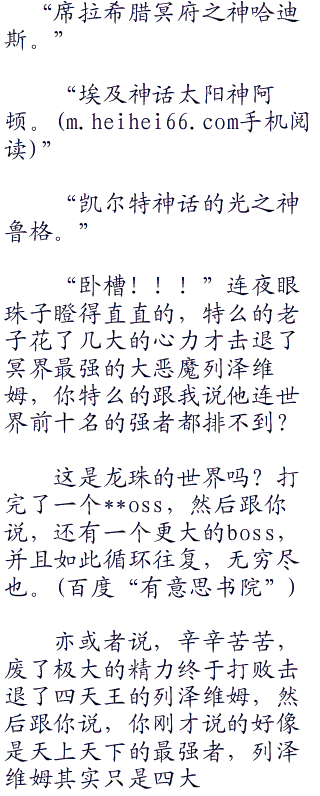 “席拉希腊冥府之神哈迪
斯。”
“埃及神话太阳神阿
顿。(m.heihei66.com手机阅
读)”
“凯尔特神话的光之神
鲁格。”
“卧槽！！！”连夜眼
珠子瞪得直直的，特么的老
子花了几大的心力才击退了
冥界最强的大恶魔列泽维
姆，你特么的跟我说他连世
界前十名的强者都排不到？
这是龙珠的世界吗？打
完了一个**oss，然后跟你
说，还有一个更大的boss，
并且如此循环往复，无穷尽
也。(百度“有意思书院”)
亦或者说，辛辛苦苦，
废了极大的精力终于打败击
退了四天王的列泽维姆，然
后跟你说，你刚才说的好像
是天上天下的最强者，列泽
维姆其实只是四大